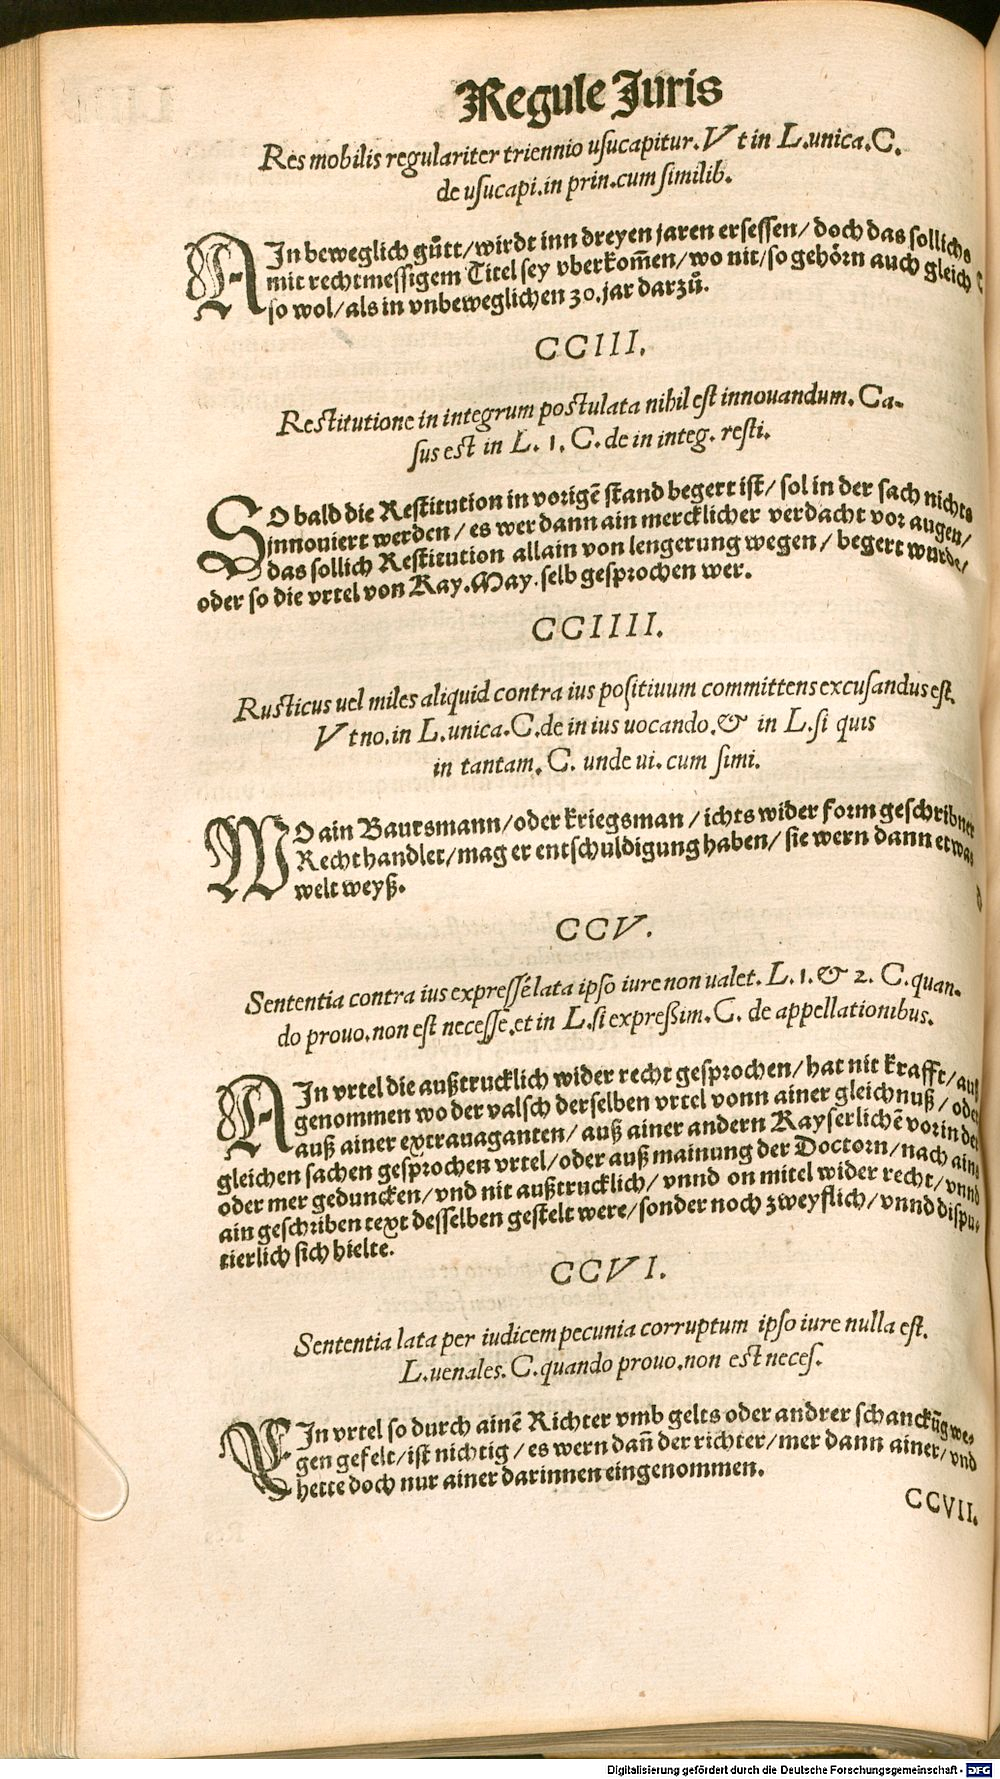 Regule Juris
Res mobilis regulariter triennio uſucapitur. Vt in L. unica. C.
de uſucapi. in prin. cum ſimilib.
AIn beweglich guͤtt/ wirdt inn dreyen jaren erſeſſen/ doch das ſollichs
mit rechtmeſſigem Titel ſey vberkom̃en/ wo nit/ ſo gehoͤrn auch gleich
ſo wol/ als in vnbeweglichen 30. jar darzuͦ.
CCIII.
Restitutione in integrum poſtulata nihil eſt innouandum. Ca-
ſus est in L. 1. C. de in integ. reſti.
SO bald die Reſtitution in vorigẽ ſtand begert iſt/ ſol in der ſach nichts
innouiert werden/ es wer dann ain mercklicher verdacht vor augen/
das ſollich Reſtitution allain von lengerung wegen/ begert wurde/
oder ſo die vrtel von Kay. May. ſelb geſprochen wer.
CCIIII.
Ruſticus uel miles aliquid contra ius poſitiuum committens excuſandus eſt.
Vt no. in L. unica. C. de in ius uocando. & in L. ſi quis
in tantam. C. unde ui. cum ſimi.
WO ain Baursmann/ oder kriegsman/ ichts wider form geſchribner
Recht handlet/ mag er entſchuldigung haben/ ſie wern dann etwas
welt weyß.
CCV.
Sententia contra ius expreſſé lata ipſo iure non ualet. L. 1. & 2. C. quan-
do prouo. non eſt neceſſe. et in L. ſi expreßim. C. de appellationibus.
AIn vrtel die außtrucklich wider recht geſprochen/ hat nit krafft/ auß
genommen wo der valſch derſelben vrtel vonn ainer gleichnuß/ oder
auß ainer extrauaganten/ auß ainer andern Kayſerlichẽ vor in der
gleichen ſachen geſprochen vrtel/ oder auß mainung der Doctorn/ nach ains
oder mer geduncken/ vnd nit außtrucklich/ vnnd on mitel wider recht/ vnnd
ain geſchriben text deſſelben geſtelt were/ ſonder noch zweyflich/ vnnd diſpu-
tierlich ſich hielte.
CCVI.
Sententia lata per iudicem pecunia corruptum ipſo iure nulla eſt.
L. uenales. C. quando prouo. non est neceſ.
EIn vrtel ſo durch ainẽ Richter vmb gelts oder andrer ſchanckũg we-
gen gefelt/ iſt nichtig/ es wern dañ der richter/ mer dann ainer/ vnd
hette doch nur ainer darinnen eingenommen.
CCVII.
Digitalisierung gefördert durch die Deutsche Forschungsgemeinschaft - DFG